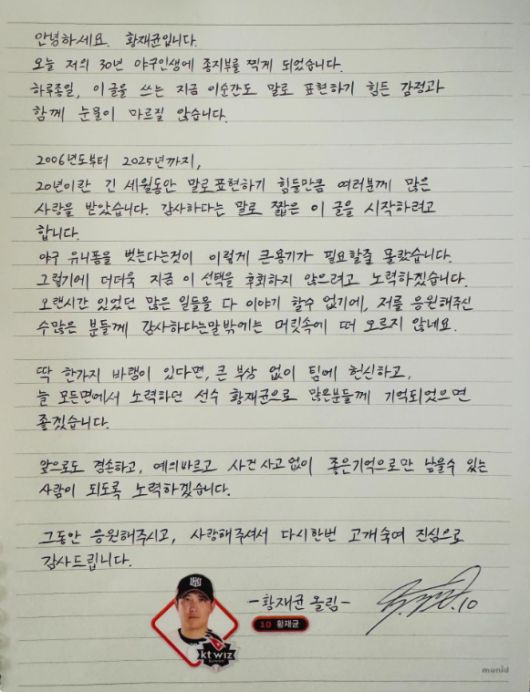 안녕하세요. 황재균입니다.
오늘 저의 30년 야구인생에 종지부를 찍게 되었습니다.
하루종일, 이 글을 쓰는 지금 이순간도 말로 표현하기 힘든 감정과
함께 눈물이 마르질 않습니다.
2006년도부터 2025년까지,
20년이란 긴 세월동안 말로표현하기 힘들만큼 여러분께 많은
사랑을 받았습니다. 감사하다는 말로 짧은 이 글을 시작하려고
합니다.
야구 유니폼을 벗는다는것이 이렇게 큰용기가 필요할줄 몰랐습니다.
그렇기에 더더욱 지금 이 선택을 후회하지 않으려고 노력하겠습니다.
오랜시간 있었던 많은 일들을 다 이야기 할수 없기에, 저를 응원해주신
수많은 분들께 감사하다는말밖에는 머릿속에 떠 오르지 않네요.
딱 한가지 바램이 있다면, 큰 부상 없이 팀에 헌신하고,
늘 모든면에서 노력하던 선수 황재균으로 많은분들께 기억되었으면
좋겠습니다.
앞으로도 겸손하고, 예의바르고 사건 사고 없이 좋은기억으로만 남을수 있는
사람이 되도록 노력하겠습니다.
그동안 응원해주시고, 사랑해주셔서 다시한번 고개숙여 진심으로
감사드립니다.
-황재균 올림-
10 황재균
10
kt wiz
munid